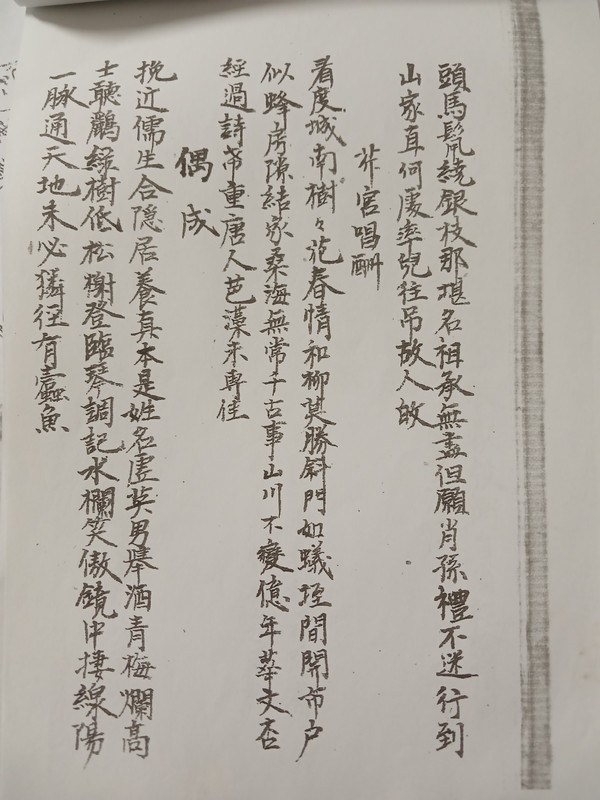 頭馬鬣繞銀枝那堪名祖承無盡但願肖孫禮不迷行到
山家直何處率兒往吊故人的
芹宮唱酬
看度城南樹々花春情和柳莫勝斜門如蟻垤間開市户
似蜂房隙結家桑海無常千古事山川不變億年華文杏
經過詩帝重唐人芭藻未專佳
偶成
挽近儒生合隠居養真本是姓名虛英男舉酒青梅爛高
士聽鸝緑樹低松榭登臨琴調記水欄笑傲鏡中捿線陽
一脉通天地未必猶徑有蠹魚